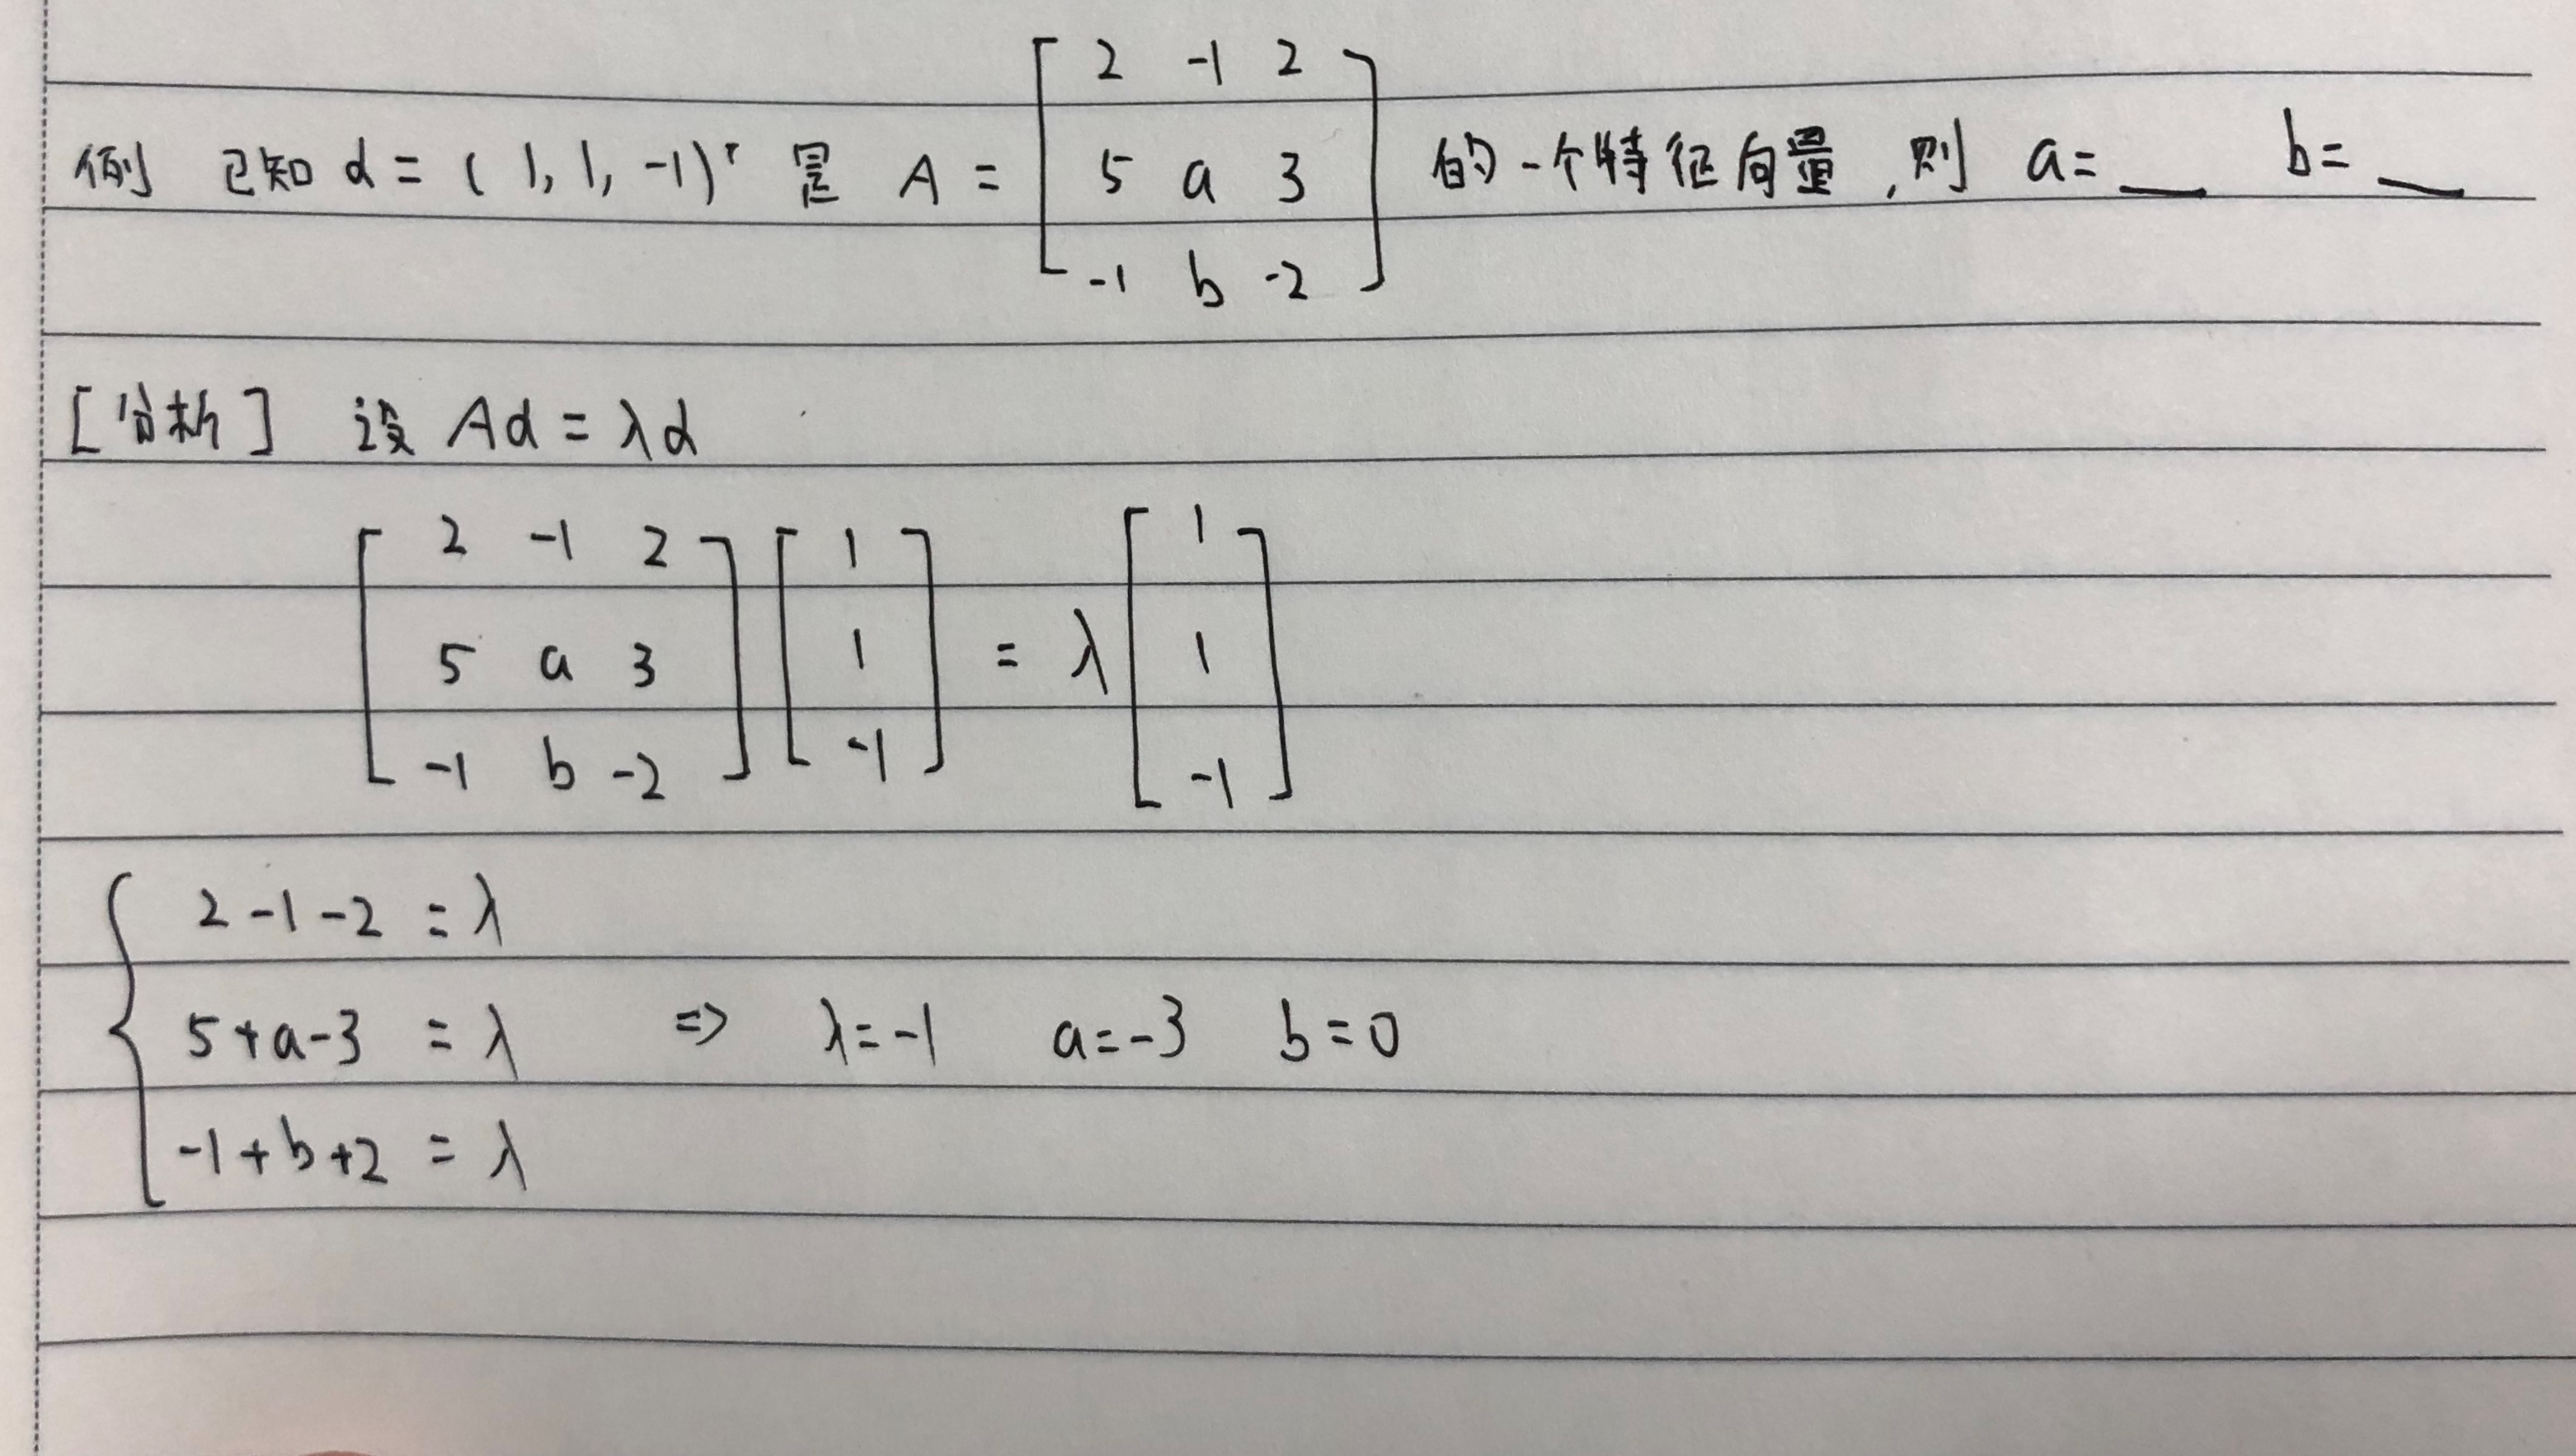 例 已知 α = ( 1, 1, -1)ᵀ 是 A = [ 2 -1 2 ; 5 a 3 ; -1 b -2 ] 的一个特征向量, 则 a= __ b= __
[分析] 设 Aα = λα
[ 2 -1 2 ; 5 a 3 ; -1 b -2 ] [ 1 ; 1 ; -1 ] = λ [ 1 ; 1 ; -1 ]
2 -1 -2 = λ
5+a-3 = λ => λ=-1 a=-3 b=0
-1+b+2 = λ